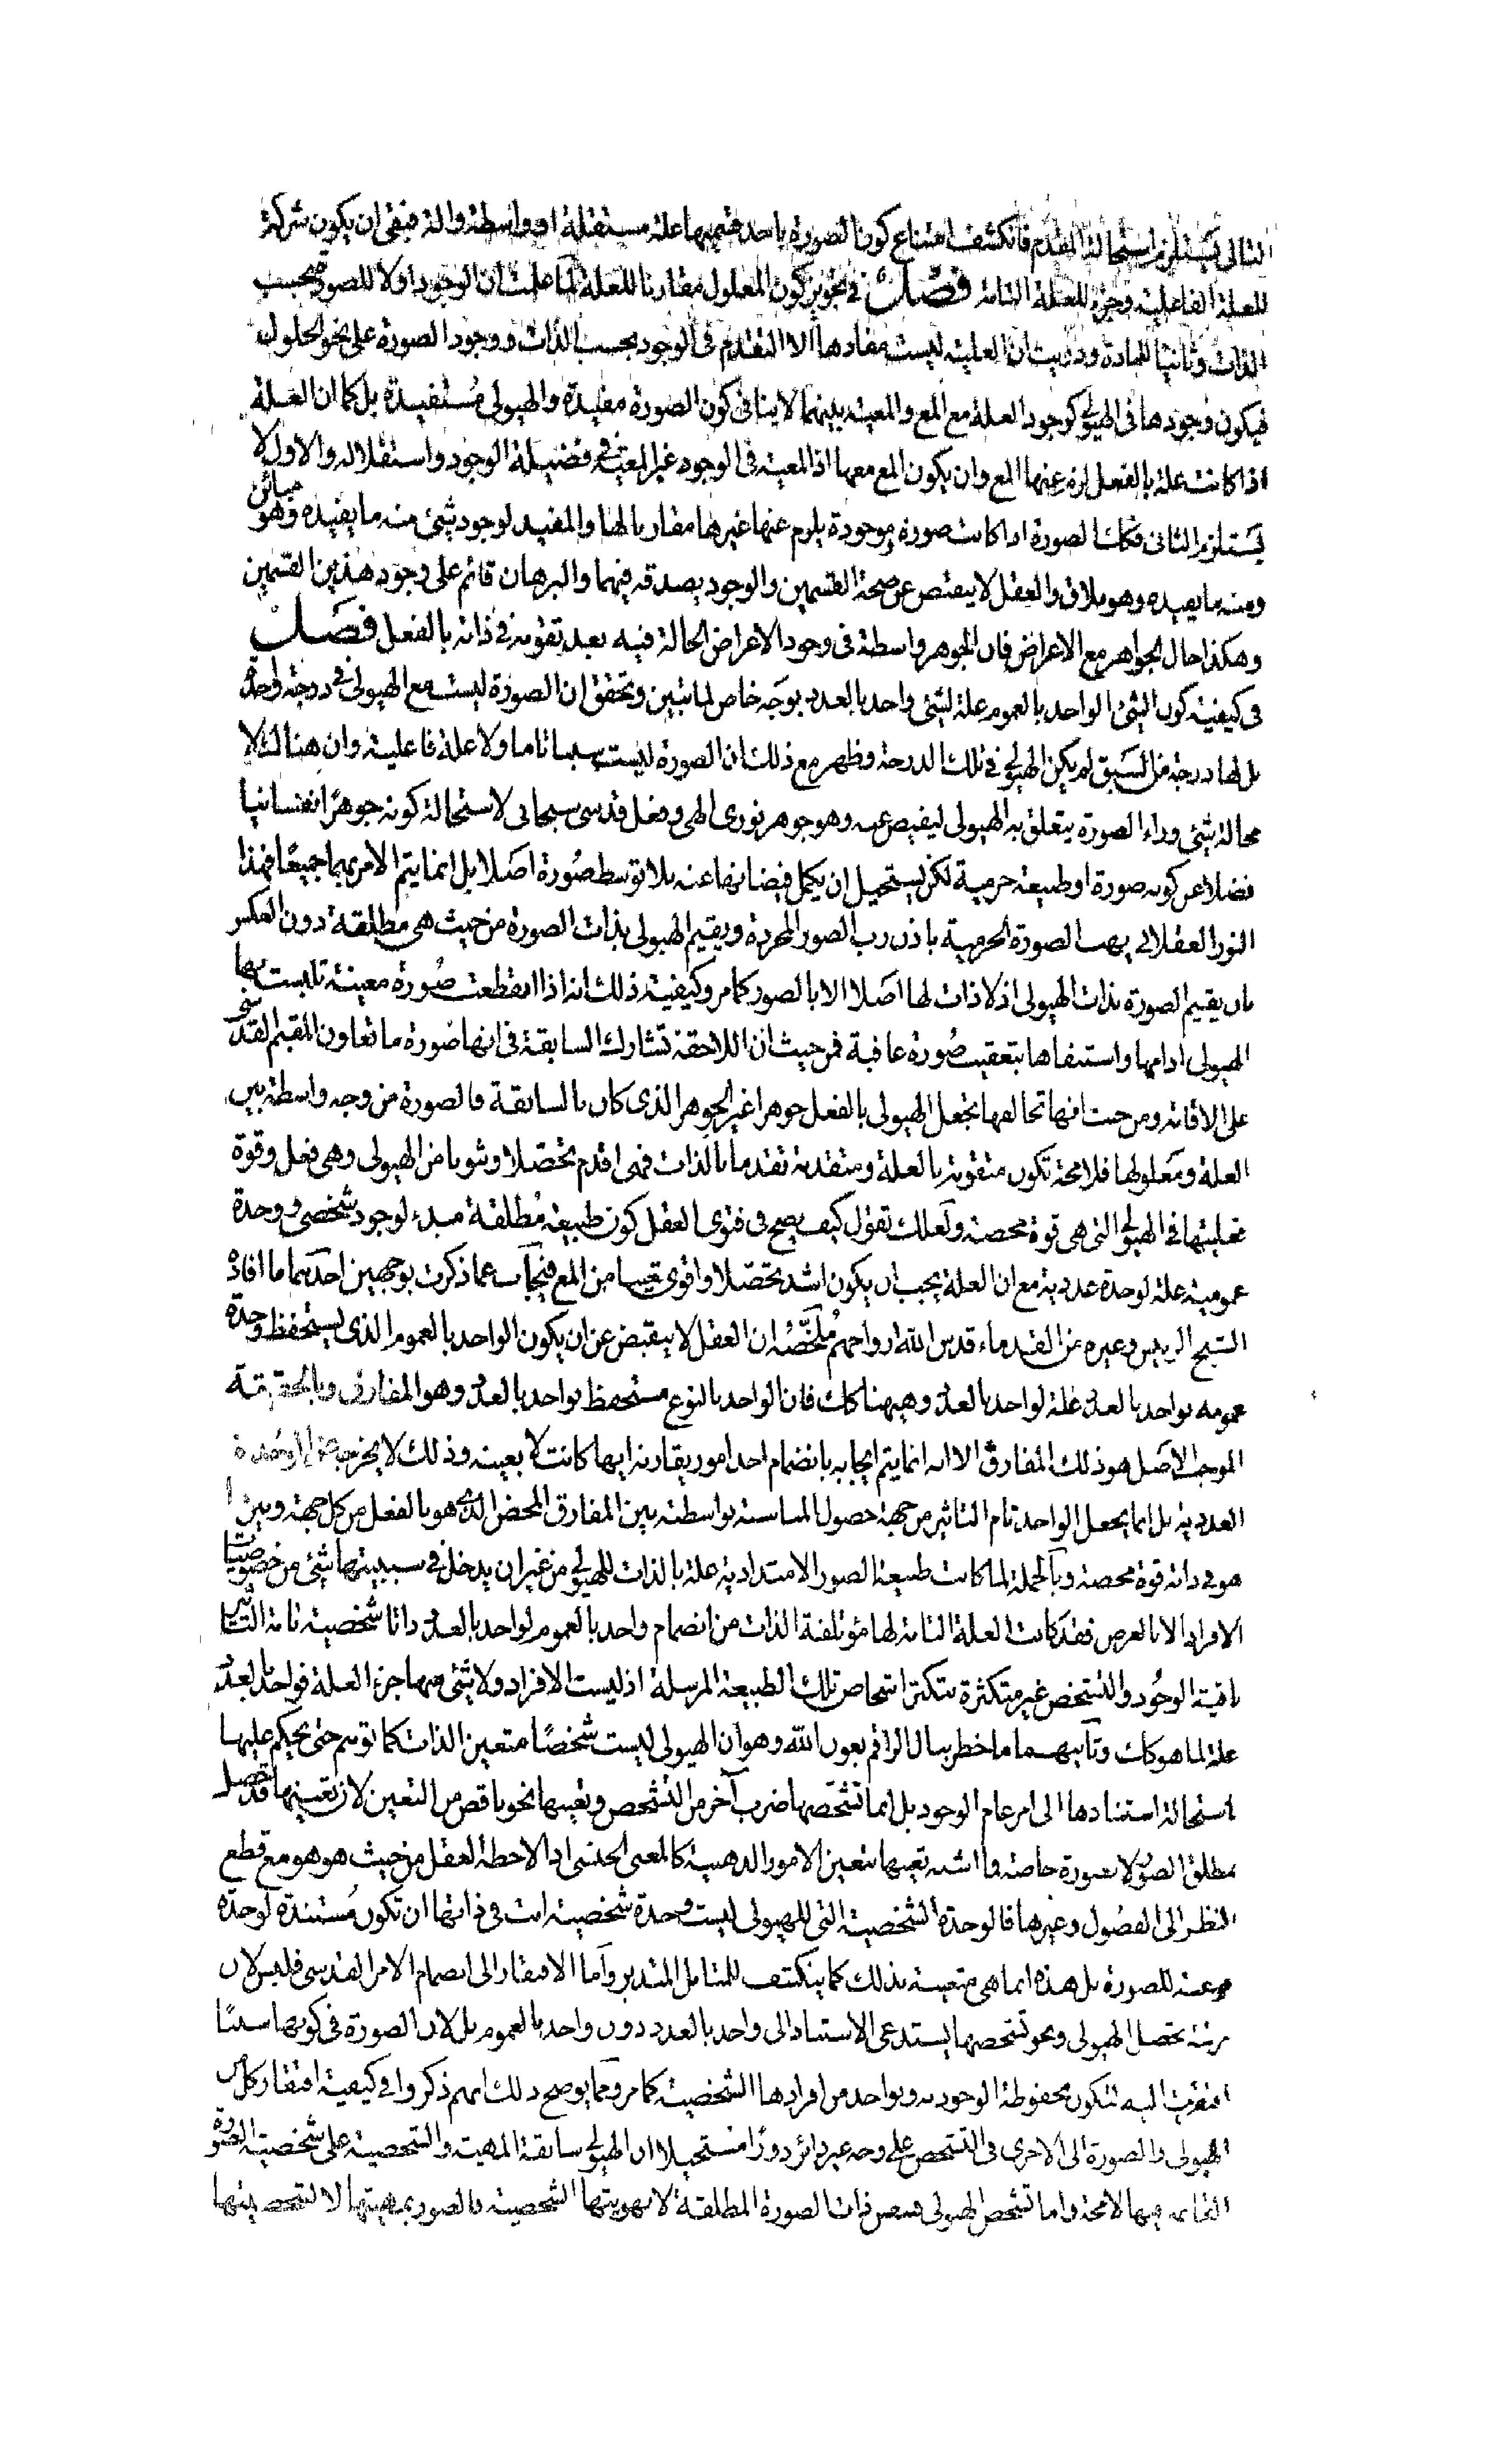 التالى يستلزم استحالة المقدم فانكشف امتناع كون الصورة باحد قسميها علة مستقلة او واسطة والة فبقى ان يكون شركة
للعلة الفاعلية وجزء للعلة التامة فصل فى تجويز كون المعلول مقارنا للعلة لما علمت ان الوجود اولا للصورة بحسب
الذات وثانيا للمادة ودريت ان العلية ليست مفادها الا التقدم فى الوجود بحسب الذات ووجود الصورة على نحو الحلول
فيكون وجودها فى الهيولى كوجود العلة مع المع والمعية بينهما لا ينافى كون الصورة مفيدة والهيولى مستفيدة بل كما ان العلة
اذا كانت علة بالفعل لزم عنها المع وان يكون المع معها اذ المعية فى الوجود غير المعية فى فضيلة الوجود واستقلاله والاول لا
يستلزم الثانى فكك الصورة اذا كانت صورة موجودة يلزم عنها غيرها مقارنا لها والمفيد لوجود شئ منه ما يفيده وهو مبائن
ومنه ما يفيده وهو ملاق والعقل لا ينقبض عن صحة القسمين والوجود يصدقه فيهما والبرهان قائم على وجود هذين القسمين
وهكذا حال الجواهر مع الاعراض فان الجوهر واسطة فى وجود الاعراض الحالة فيه بعد تقومه فى ذاته بالفعل فصل
فى كيفية كون الشئ الواحد بالعموم علة لشئ واحد بالعدد بوجه خاص لما تبين وتحقق ان الصورة ليست مع الهيولى فى درجة واحدة
بل لها درجة من السبق لم يكن الهيولى فى تلك الدرجة وظهر مع ذلك ان الصورة ليست سببا تاما ولا علة فاعلية وان هناك لا
محالة شئ وراء الصورة يتعلق به الهيولى ليفيض عنه وهو جوهر نورى الهى وفعل قدسى سبحانى لاستحالة كونه جوهرا نفسانيا
فضلا عن كونه صورة او طبيعة جرمية لكن يستحيل ان يكمل فيضانها عنه بلا توسط صورة اصلا بل انما يتم الامر بهما جميعا فهذا
النور العقلانى يهب الصورة الجرمية باذن رب الصور المجردة ويقيم الهيولى بذات الصورة من حيث هى مطلقة دون العكس
بان يقيم الصورة بذات الهيولى اذ لا ذات لها اصلا الا بالصور كما مر وكيفية ذلك انه اذا انقطعت صورة معينة تلبست بها
الهيولى ادامها واستبقاها بتعقيب صورة عاقبة فمن حيث ان اللاحقة تشارك السابقة فى انها صورة ما تعاون المقيم القدسى
على الاقامة ومن حيث انها تخالفها يجعل الهيولى بالفعل جوهرا غير الجوهر الذى كان بالسابقة فالصورة من وجه واسطة بين
العلة ومعلولها فلا محة تكون متقومة بالعلة ومتقدمة تقدما بالذات فهى اقدم تحصلا وثبوتا من الهيولى وهى فعل وقوة
فعليتها فى الهيولى التى هى قوة محضة ولعلك تقول كيف يصح فى فتوى العقل كون طبيعة مطلقة مبدء لوجود شخصى ووحدة
عمومية علة لوحدة عددية مع ان العلة يجب ان يكون اشد تحصلا واقوى تعينا من المع فنجاب عما ذكرت بوجهين احدهما ما افاده
الشيخ الرئيس وغيره من القدماء قدس الله ارواحهم ملخصه ان العقل لا ينقبض عن ان يكون الواحد بالعموم الذى يستحفظ وحدة
عمومه بواحد بالعدد علة لواحد بالعدد وهيهنا كك فان الواحد بالنوع مستحفظ بواحد بالعدد وهو المفارق وبالحقيقة
الموجب الاصل هو ذلك المفارق الا انه انما يتم ايجابه بانضمام احد امور يقارنه ايها كانت لا بعينه وذلك لا يخرجه عن الوحدة
العددية بل انما يجعل الواحد تام التاثير من جهة حصول المناسبة بواسطته بين المفارق المحض الذى هو بالفعل من كل جهة وبين
هو فى ذاته قوة محضة وبالجملة لما كانت طبيعة الصور الامتدادية علة بالذات للهيولى من غير ان يدخل فى سببيتها شئ من خصوصيات
الافراد الا بالعرض فقد كانت العلة التامة لها مؤتلفة الذات من انضمام واحد بالعموم لواحد بالعدد ذاتا شخصية تامة التاثير
باقية الوجود والتشخص غير متكثرة بتكثر اشخاص تلك الطبيعة المرسلة اذ ليست الافراد ولا شئ منها جزء العلة فواحد بالعدد
علة لما هو كك وثانيهما ما خطر ببال الراقم بعون الله وهو ان الهيولى ليست شخصا متعين الذات كما توهم حتى يحكم عليها
باستحالة استنادها الى امر عام الوجود بل انما تشخصها ضرب آخر من التشخص وتعينها نحو ناقص من التعين لان تعينها قد حصل
بمطلق الصور لا بصورة خاصة وما اشبه تعينها بتعين الامور الذهنية كالمعنى الجنسى اذا لاحظه العقل من حيث هو هو مع قطع
النظر الى الفصول وغيرها فالوحدة الشخصية التى للهيولى ليست وحدة شخصية ابت فى ذاتها ان تكون مستندة لوحدة
نوعية للصورة بل هذه انما هى متعينة بذلك كما ينكشف للمتامل المتدبر واما الافتقار الى انضمام الامر القدسى فليس لان
مرتبة تحصل الهيولى ونحو تشخصها يستدعى الاستناد الى واحد بالعدد دون واحد بالعموم بل لان الصورة فى كونها سببا
افتقرت اليه لتكون محفوظة الوجود به وبواحد من افرادها الشخصية كما مر ومما يوضح ذلك انهم ذكروا فى كيفية افتقار كل من
الهيولى والصورة الى الاخرى فى التشخص على وجه غير دائر دورا مستحيلا ان الهيولى سابقة المهية والشخصية على شخصية الصورة
القائمة فيها لا محة واما تشخص الهيولى فبنفس ذات الصورة المطلقة لا بهويتها الشخصية فالصور بمهيتها لا بتشخصيتها